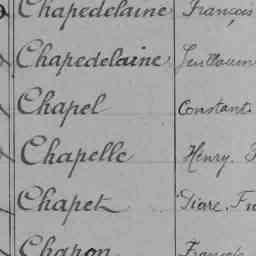 Chapedelaine François
Chapedelaine Guillaum
Chapel Constant
Chapelle Henry.
Chapet
Chapon François